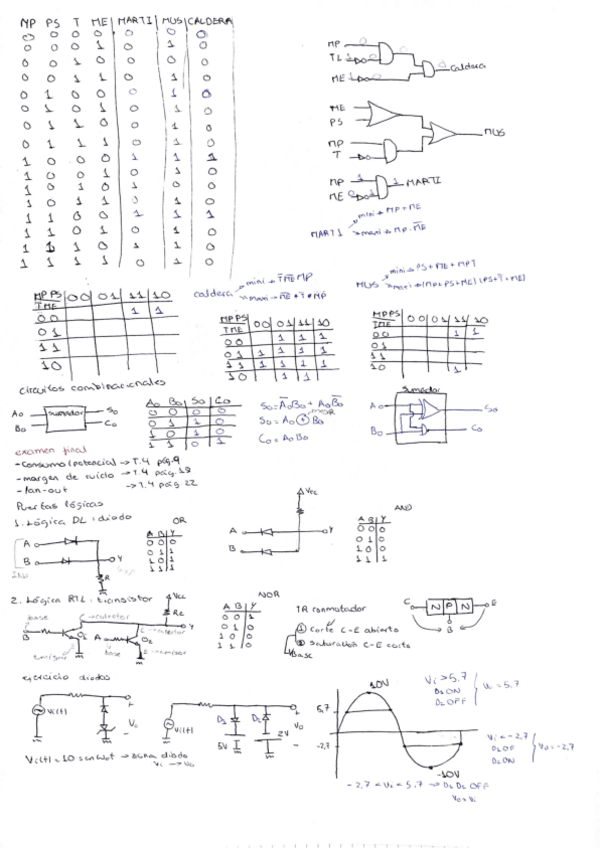 MP PS T ME MARTI MUS CALDERA
0 0 0 0 0 0 0
0 0 0 1 0 1 0
0 0 1 0 0 0 0
0 0 1 1 0 1 0
0 1 0 0 0 1 0
0 1 0 1 0 1 0
0 1 1 0 0 1 0
0 1 1 1 0 1 0
1 0 0 0 1 1 1
1 0 0 1 0 1 0
1 0 1 0 1 0 0
1 0 1 1 0 1 0
1 1 0 0 1 1 1
1 1 0 1 0 1 0
1 1 1 0 1 1 0
1 1 1 1 0 1 0
MP
TL
ME
Caldera
ME
PS
MP
T
MUS
MP
ME
MARTI
MARTI
mini → MP + M̅E̅
maxi → MP · M̅E̅
caldera
mini → T̅ M̅E̅ MP
maxi → M̅E̅ · T̅ · MP
MUS
mini → PS + ME + MPT̅
maxi → (MP+PS+ME)(PS+T̅+ME)
MP PS 00 01 11 10
TME
00 1 1
01
11
10
MP PS 00 01 11 10
TME
00 1 1 1
01 1 1 1 1
11 1 1 1 1
10 1 1
MP PS 00 01 11 10
TME
00 1 1
01
11
10 1
circuitos combinacionales
A₀
B₀
sumador
S₀
C₀
A₀ B₀ S₀ C₀
0 0 0 0
0 1 1 0
1 0 1 0
1 1 0 1
S₀ = A̅₀B₀ + A₀B̅₀
S₀ = A₀ ⊕ B₀
C₀ = A₀B₀
Sumador
A₀
B₀
S₀
C₀
examen final
- Consumo (potencia) → T.4 pág.9
- margen de ruido → T.4 pág.18
- fan-out → T.4 pág 22
Puertas lógicas
1. Lógica DL: diodo
OR
A B Y
0 0 0
0 1 1
1 0 1
1 1 1
A
B
Y
R
Vcc
A
B
Y
AND
A B Y
0 0 0
0 1 0
1 0 0
1 1 1
2. Lógica RTL: transistor
C → colector
Vcc
RL
Y
base
B
Q₁
A
base
Q₂
Emisor
E → emisor
NOR
A B Y
0 0 1
0 1 0
1 0 0
1 1 0
TR conmutador
① Corte C-E abierto
② Saturación C-E corto
Base
C
N P N
E
B
ejercicio diodos
Vi(t)
+
V₀
-
Vi(t)
D₁
D₂
5V
2V
+
V₀
-
Vi(t) = 10 sen wot
10V
5,7
-2,7
-10V
Vi > 5,7
D₁ ON
D₂ OFF
V₀ = 5,7
Vi < -2,7
D₁ OF
D₂ ON
V₀ = -2,7
-2,7 < Vi < 5,7 → D₁ D₂ OFF
V₀ = Vi